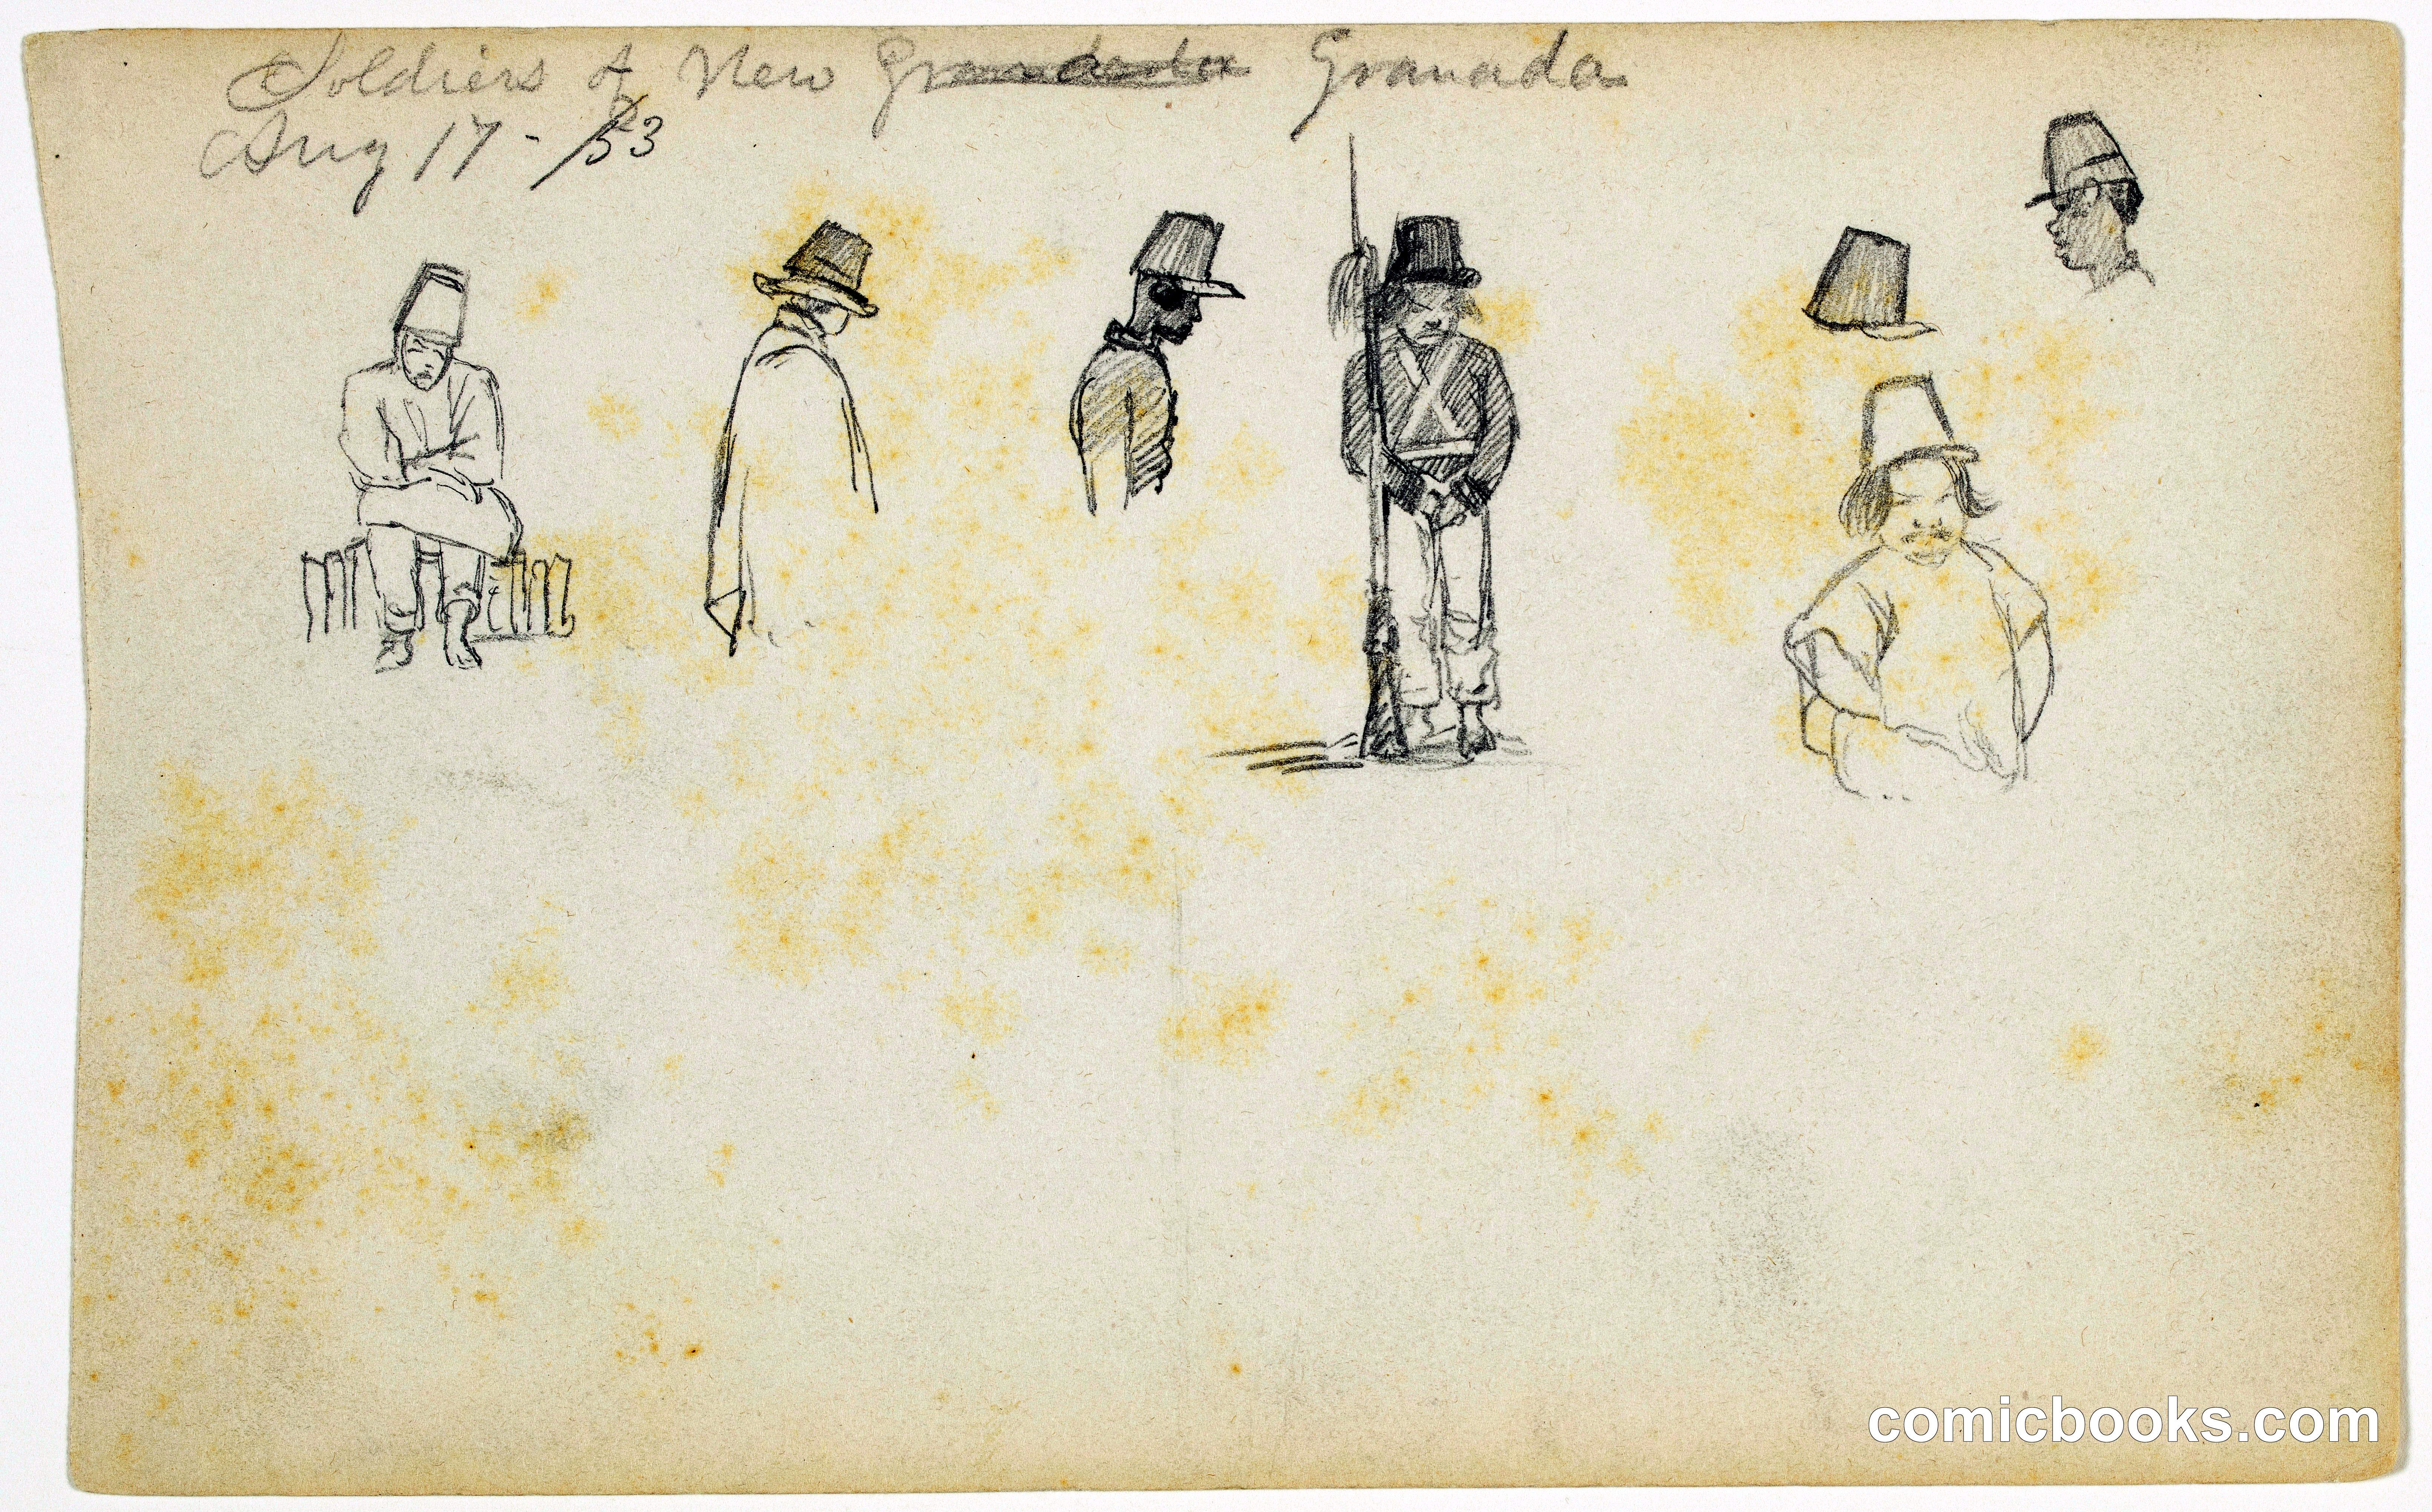 Soldiers of New Granada Granada
Aug 17 - /53
comicbooks.com